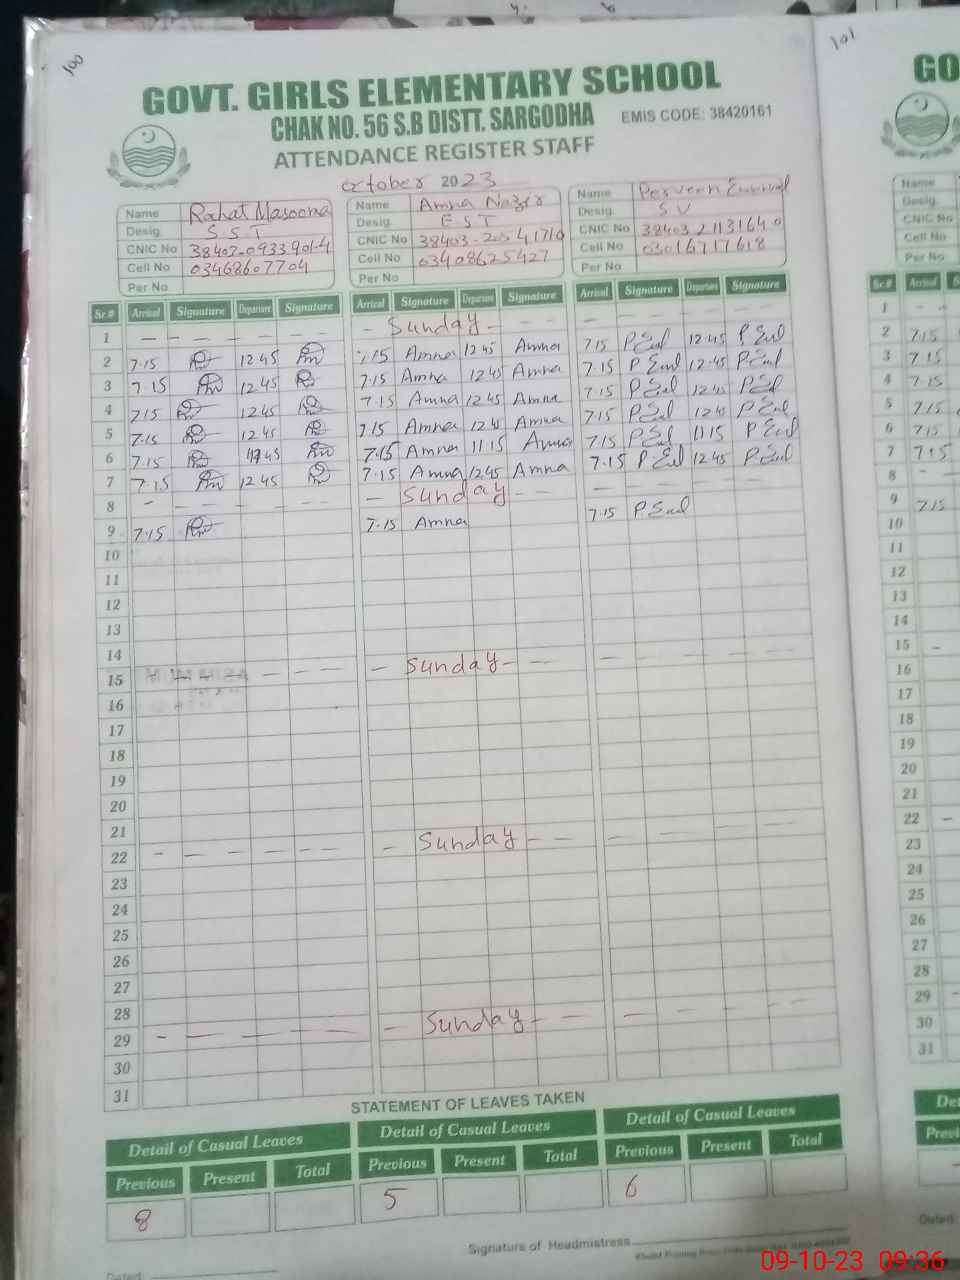 100
101
GOVT. GIRLS ELEMENTARY SCHOOL
GO
CHAK NO. 56 S.B DISTT. SARGODHA
EMIS CODE: 38420161
ATTENDANCE REGISTER STAFF
october 2023
Name Rahat Masooma Name Amna Nazir Name Perveen
Desig. SST Desig. EST Desig. SV
CNIC No CNIC No CNIC No
Cell No 03468607704 Cell No 03408625427 Cell No 03016717618
Per No Per No Per No
Name
Desig.
CNIC No
Cell No
Per No
Sr.# Arrival Signature Departure Signature Arrival Signature Departure Signature Arrival Signature Departure Signature Sr.# Arrival
1 - - - - - Sunday - - - - - - - 1
2 7.15 12 45 7.15 Amna 12 45 Amna 7.15 12.45 2 7.15
3 7.15 12 45 7.15 Amna 12 45 Amna 7.15 12.45 3 7.15
4 7.15 12 45 7.15 Amna 12 45 Amna 7.15 12 45 4 7.15
5 7.15 12 45 7.15 Amna 12 45 Amna 7.15 12 45 5 7.15
6 7.15 7.15 Amna 11 15 Amna 7.15 11 15 6 7.15
7 7.15 12 45 7.15 Amna 12 45 Amna 7.15 12 45 7 7.15
8 - - Sunday - - - - - - 8 - -
9 7.15 7.15 Amna 7.15 9 7.15
10 10
11 11
12 12
13 13
14 14
15 - - - - - Sunday - - - - - - 15 -
16 16
17 17
18 18
19 19
20 20
21 21
22 - - - - - - Sunday - - - - - - 22 -
23 23
24 24
25 25
26 26
27 27
28 28
29 - - - - - - Sunday - - - - - - 29 -
30 30
31 31
STATEMENT OF LEAVES TAKEN
Detail of Casual Leaves Detail of Casual Leaves Detail of Casual Leaves
Previous Present Total Previous Present Total Previous Present Total
8 5 6
Signature of Headmistress
Dated:
Dated:
09-10-23 09:36